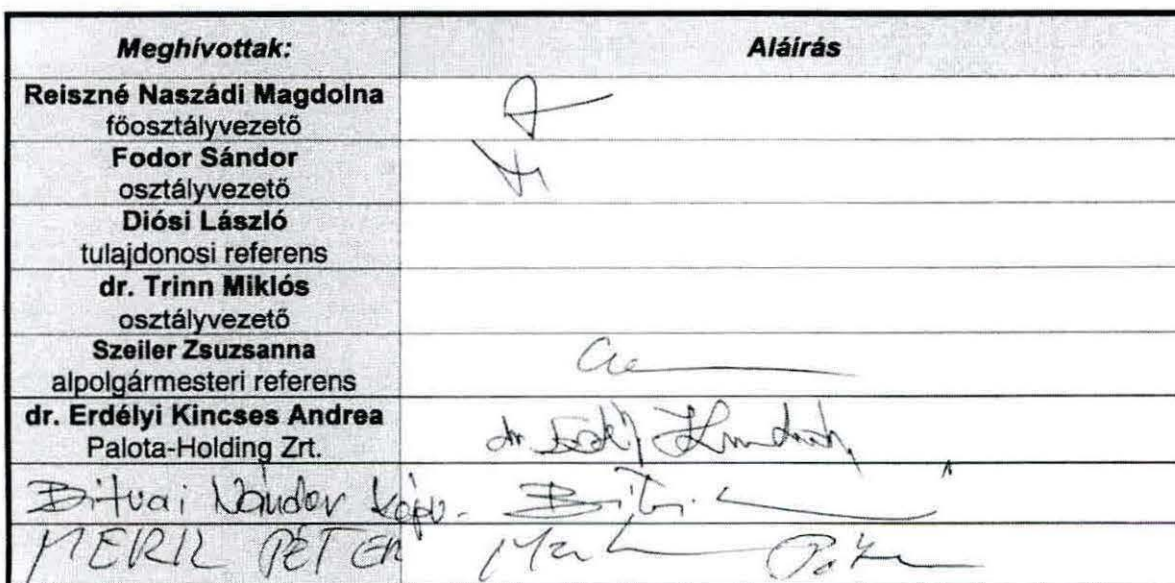 Meghívottak: Aláírás
Reiszné Naszádi Magdolna
főosztályvezető
Fodor Sándor
osztályvezető
Diósi László
tulajdonosi referens
dr. Trinn Miklós
osztályvezető
Szeiler Zsuzsanna
alpolgármesteri referens
dr. Erdélyi Kincses Andrea
Palota-Holding Zrt.
Bitvai Nándor képv.
MERIL PÉTER